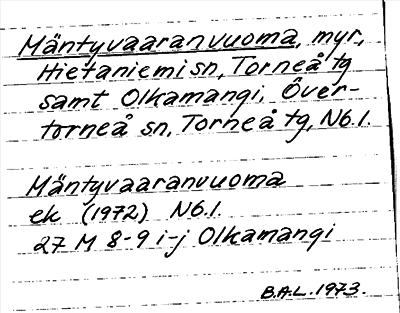 Mäntyvaaranvuoma, myr,
Hietaniemi sn, Torneå tg
samt Olkamangi, Över-
torneå sn, Torneå tg, Nb.l.
Mäntyvaaranvuoma
ek (1972) Nb.l.
27 M 8-9 i-j Olkamangi
B.A.L. 1973.